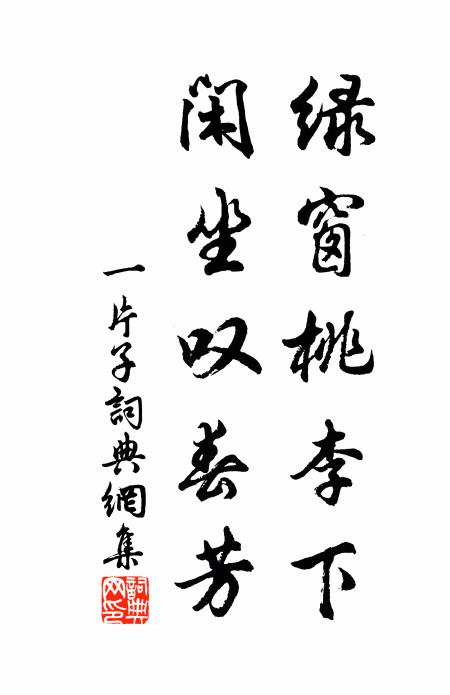 绿窗桃李下
闲坐叹春芳
一片子詞典網集
詞典网印